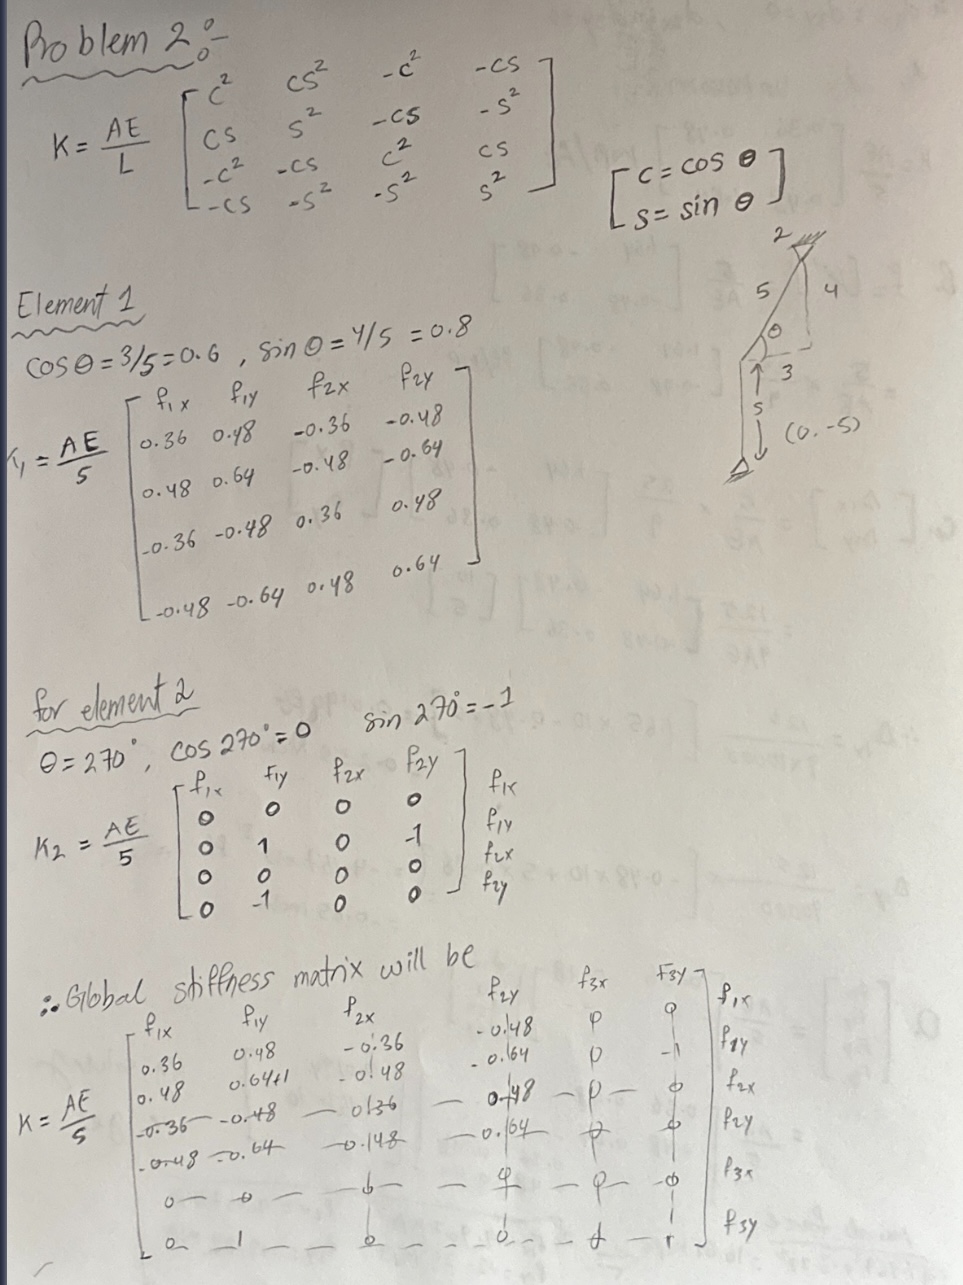 Problem 2:-
K = AE/L [ c² cs² -c² -cs
cs s² -cs -s²
-c² -cs c² cs
-cs -s² -s² s² ]
[ c = cos θ
s = sin θ ]
2
5 4
θ
3
5
(0.-5)
Element 1
cos θ = 3/5 = 0.6 , sin θ = 4/5 = 0.8
f1x f1y f2x f2y
K1 = AE/5 [ 0.36 0.48 -0.36 -0.48
0.48 0.64 -0.48 -0.64
-0.36 -0.48 0.36 0.48
-0.48 -0.64 0.48 0.64 ]
for element 2
θ = 270° , cos 270° = 0 sin 270° = -1
f1x f1y f2x f2y
K2 = AE/5 [ 0 0 0 0 ] f1x
0 1 0 -1 f1y
0 0 0 0 f2x
0 -1 0 0 f2y
∴ Global stiffness matrix will be
f1x f1y f2x f2y f3x f3y
K = AE/5 [ 0.36 0.48 -0.36 -0.48 0 0 ] f1x
0.48 0.64+1 -0.48 -0.64 0 -1 f1y
-0.36 -0.48 0.36 0.48 0 0 f2x
-0.48 -0.64 0.48 0.64 0 0 f2y
0 0 0 0 0 0 f3x
0 -1 0 0 0 1 f3y